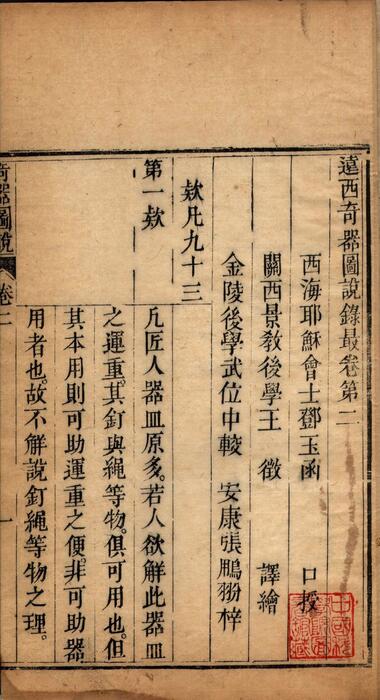 遠西奇器圖說錄最卷第二
西海耶穌會士鄧玉函 口授
關西景敎後學王 徵 譯繪
金陵後學武位中較 安康張鵬翂梓
欵凡九十三
第一欵
凡匠人器皿原多。若人欲解此器皿
之運重。其釘與繩等物。俱可用也。但
其本用則可助運重之便。非可助器
用者也。故不解說釘繩等物之理。
奇器圖說 卷二 一